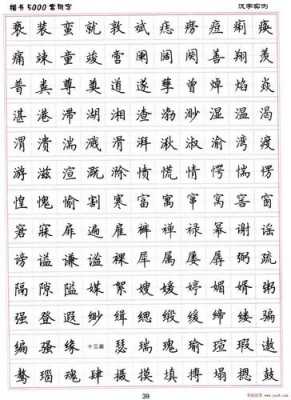 楷书5000常用字 汉字实例
亵装蛮就敦斌痣痨痘痢痪
痛竦童竣啻阑阔阕善翔羡
普粪尊奠道遂孳曾焯焰焱
湛港滞湖湘渣渤渺湿温渴
溃湍溅滑湃湫淑渝湾渡
游滋渲溉愤慌惰愕愣
惶愧愉割寒富寓窜窝窖窗
寐扉遍雇裤禅禄幂谢谣
谤谥谦谧犀属屡孱弼疏
隔隙隘媒絮嫂媛婷媚婿粥
强登缈缉缌缎缓缔缕骗
编骚缘 十三画 瑟瑞瑰瑜瑕遨
骜瑙魂肆摄摸填搏塌鼓
39